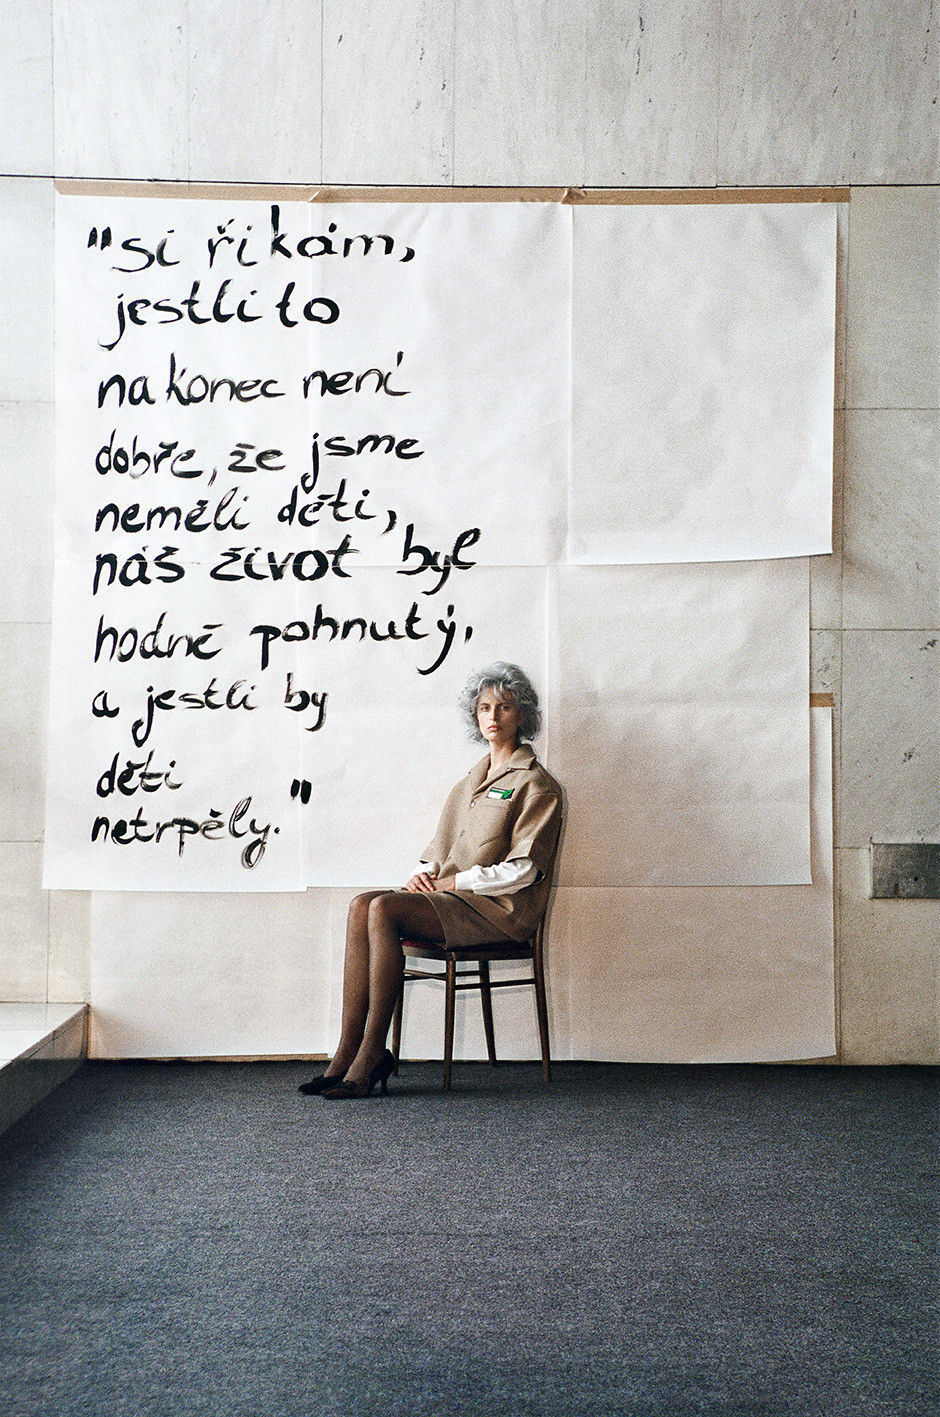 "si říkám,
jestli to
nakonec není
dobře, že jsme
neměli děti,
náš život byl
hodně pohnutý,
a jestli by
děti
netrpěly."